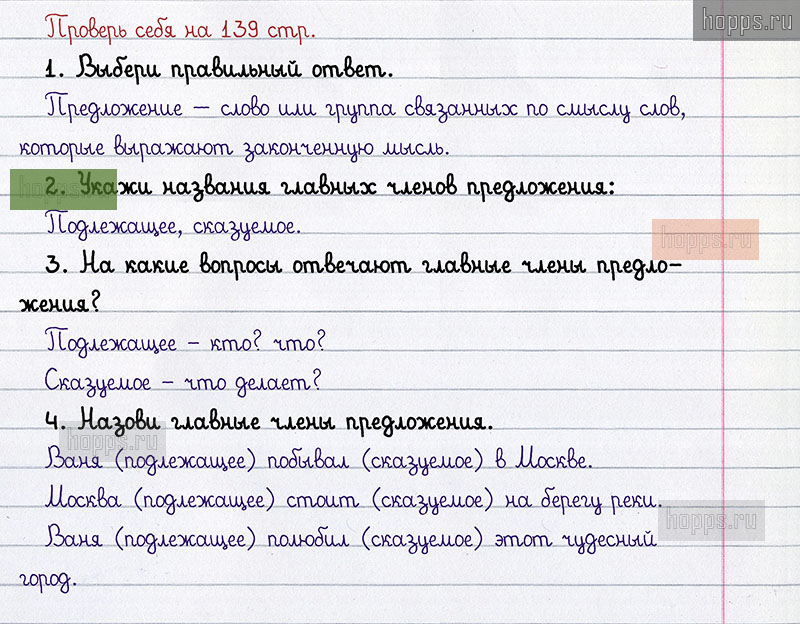 hopps.ru
Проверь себя на 139 стр.
1. Выбери правильный ответ.
Предложение — слово или группа связанных по смыслу слов,
которые выражают законченную мысль.
hopps.ru
2. Укажи названия главных членов предложения:
Подлежащее, сказуемое.
hopps.ru
3. На какие вопросы отвечают главные члены предло-
жения?
Подлежащее – кто? что?
Сказуемое – что делает?
4. Назови главные члены предложения.
hopps.ru
Ваня (подлежащее) побывал (сказуемое) в Москве.
Москва (подлежащее) стоит (сказуемое) на берегу реки.
hopps.ru
Ваня (подлежащее) полюбил (сказуемое) этот чудесный
город.